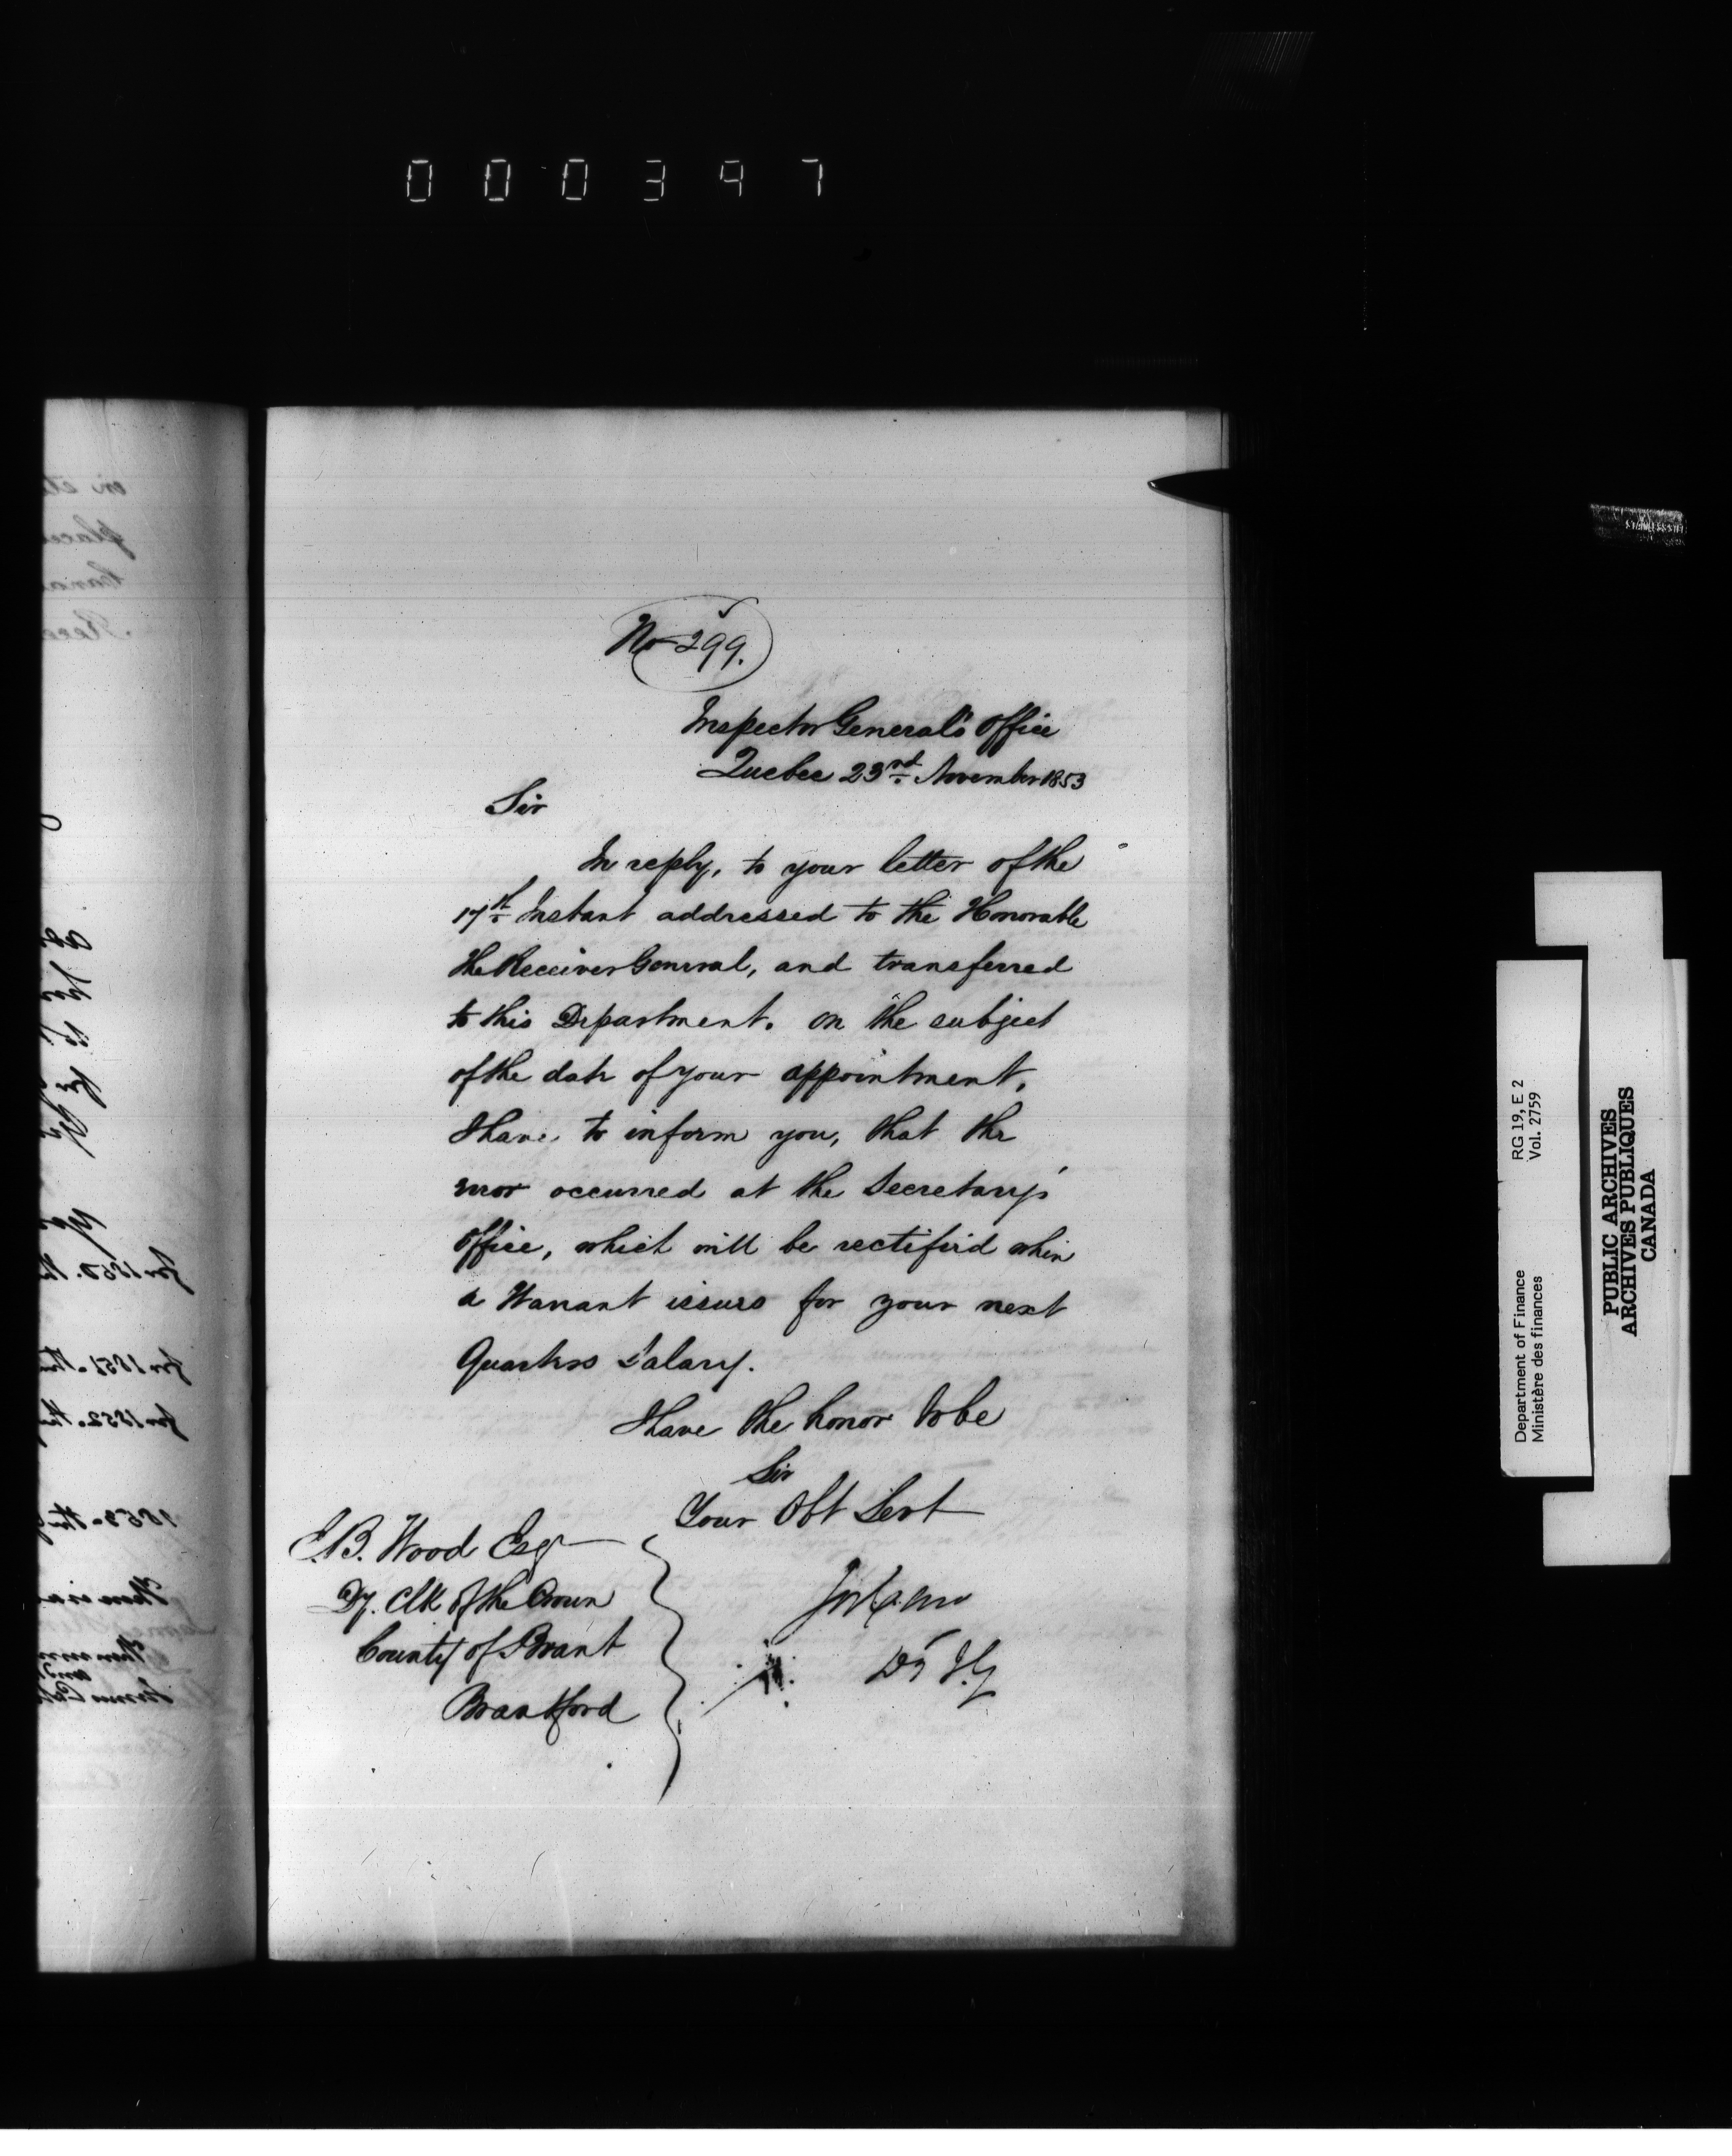 000397
No 299.
Inspector General's Office
Quebec 23rd November 1853
Sir
In reply, to your letter of the
17th Instant addressed to the Honorable
the Receiver General, and transferred
to this Department. on the subject
of the date of your appointment.
I have to inform you, that the
error occurred at the Secretary's
Office, which will be rectified when
a Warrant issues for your next
Quarters Salary.
I have the honor to be
Sir
Your Obt Servt
E.B. Wood Esqr
Dy. Clk of the Crown
County of Brant
Brantford
Dy I.G
RG 19, E 2
Vol. 2759
Department of Finance
Ministère des finances
PUBLIC ARCHIVES
ARCHIVES PUBLIQUES
CANADA